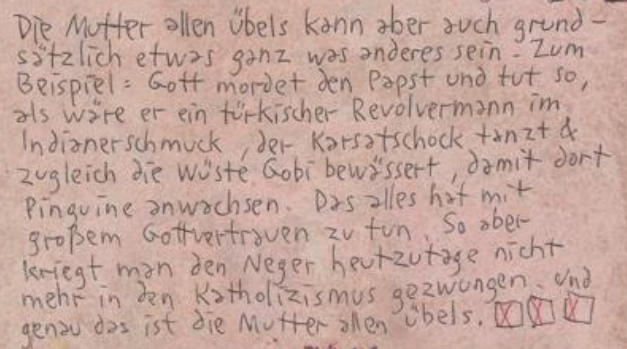 Die Mutter allen Übels kann aber auch grund-
sätzlich etwas ganz was anderes sein. Zum
Beispiel: Gott mordet den Papst und tut so,
als wäre er ein türkischer Revolvermann im
Indianerschmuck, der Karsatschock tanzt &
zugleich die Wüste Gobi bewässert, damit dort
Pinguine anwachsen. Das alles hat mit
großem Gottvertrauen zu tun. So aber
kriegt man den Neger heutzutage nicht
mehr in den Katholizismus gezwungen. Und
genau das ist die Mutter allen Übels.